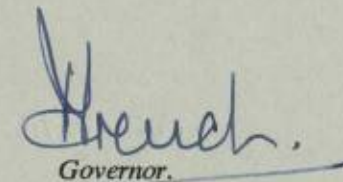 French.
Governor.